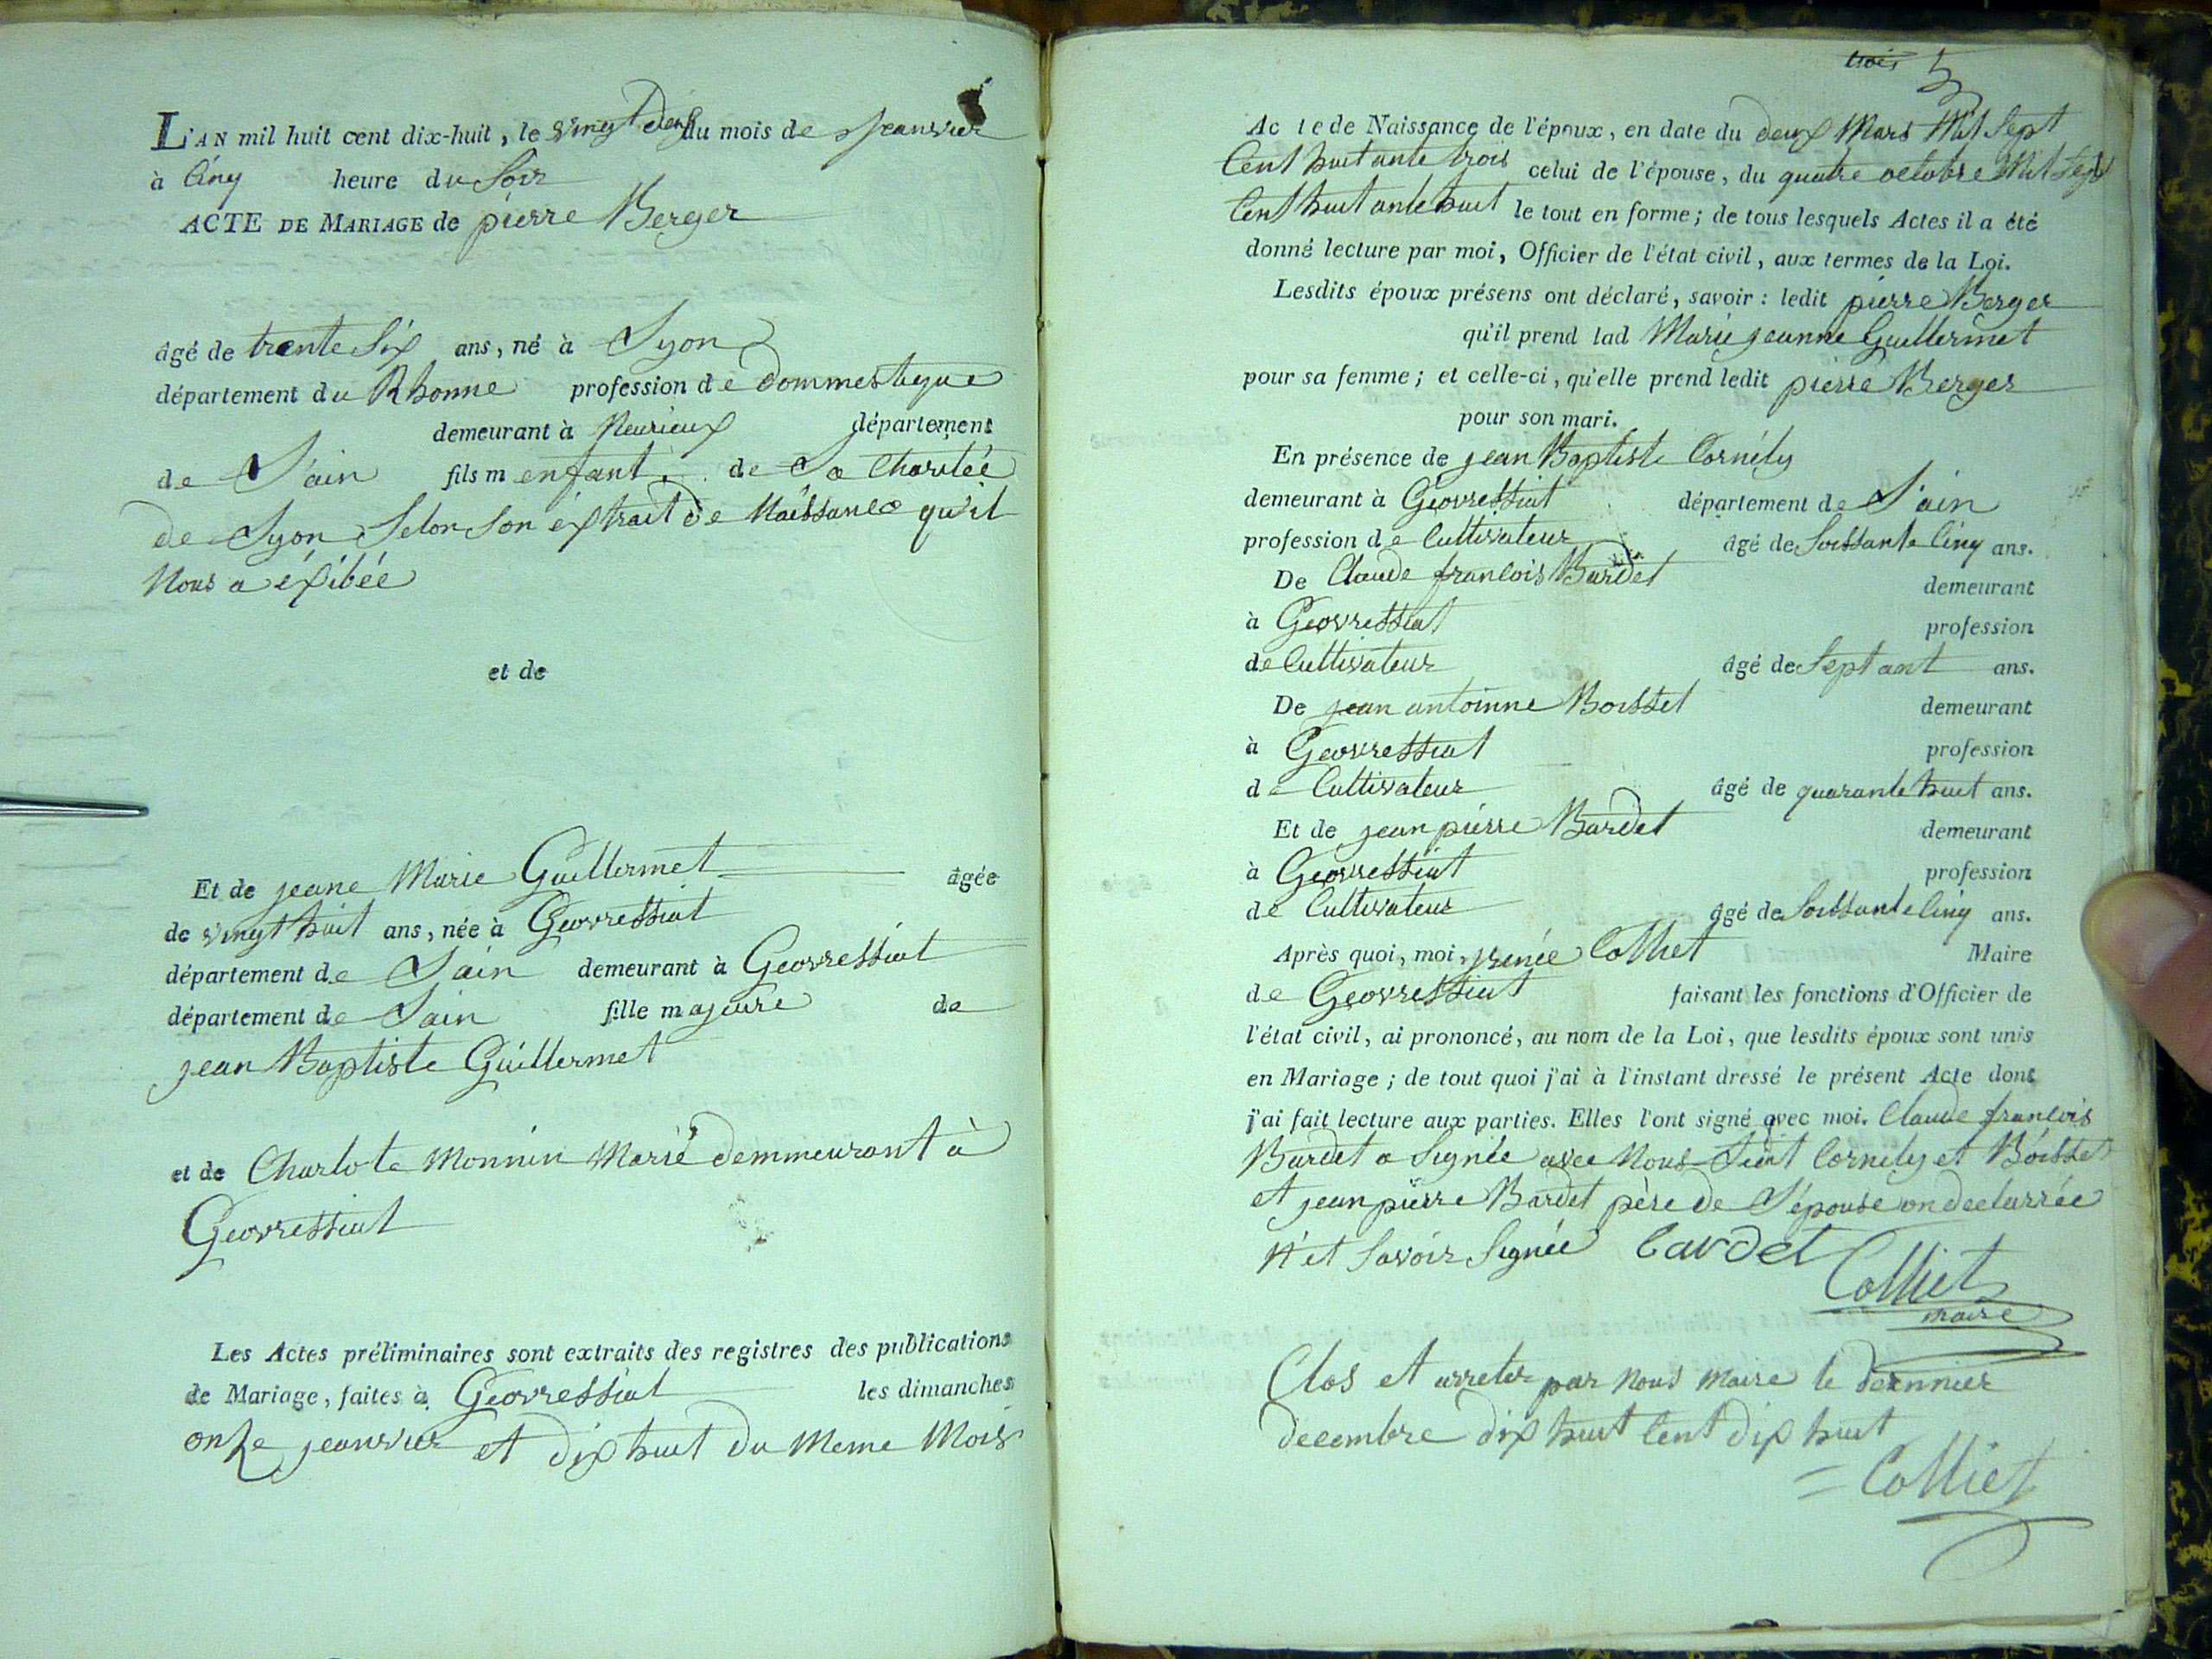 L'AN mil huit cent dix-huit, le vingt deux du mois de jeanvier
à Cinq heure du Soir
ACTE DE MARIAGE de pierre Berger
âgé de trente Six ans, né à Lyon
département du Rhonne profession de dommestique
demeurant à Neurieux département
de L'ain fils m enfant de La Charitée
de Lyon Selon Son éxtrait de Naissance qu'il
Nous a éxibée
et de
Et de jeane Marie Guillermet âgée
de vingt huit ans, née à Geovressiat
département de Lain demeurant à Geovressiat
département de Lain fille majeure de
jean Baptiste Guillermet
et de Charlote Monnin Marié demmeurant à
Geovressiat
Les Actes préliminaires sont extraits des registres des publications
de Mariage, faites à Geovressiat les dimanches
onze jeanvier et dix huit du Meme Mois
trois 5
Acte de Naissance de l'époux, en date du deux Mars Mil Sept
Cent huitante trois celui de l'épouse, du quatre octobre Mil Sept
Cent huitante huit le tout en forme; de tous lesquels Actes il a été
donné lecture par moi, Officier de l'état civil, aux termes de la Loi.
Lesdits époux présens ont déclaré, savoir: ledit pierre Berger
qu'il prend lad Marie jeanne Guillermet
pour sa femme; et celle-ci, qu'elle prend ledit pierre Berger
pour son mari.
En présence de jean Baptiste Cornély
demeurant à Geovressiat département de L'ain
profession de Cultivateur âgé de Soissante Cinq ans.
De Claude francois Burdet demeurant
à Geovressiat profession
de Cultivateur âgé de Septant ans.
De jean antoinne Boisset demeurant
à Geovressiat profession
de Cultivateur âgé de quarante huit ans.
Et de jean pierre Bardet demeurant
à Geovressiat profession
de Cultivateur âgé de Soissante Cinq ans.
Après quoi, moi, jrenée Colliet Maire
de Geovressiat faisant les fonctions d'Officier de
l'état civil, ai prononcé, au nom de la Loi, que lesdits époux sont unis
en Mariage; de tout quoi j'ai à l'instant dressé le présent Acte dont
j'ai fait lecture aux parties. Elles l'ont signé avec moi. Claude francois
Burdet a Signée avec Nous Ledit Cornely et Boisset
et jean pierre Bardet père de L'épouse on declarrée
N'et Savoir Signée Cardet
Colliet
maire
Clos et arreter par Nous Maire le dernnier
decembre dix huit Cent dix huit
Colliet